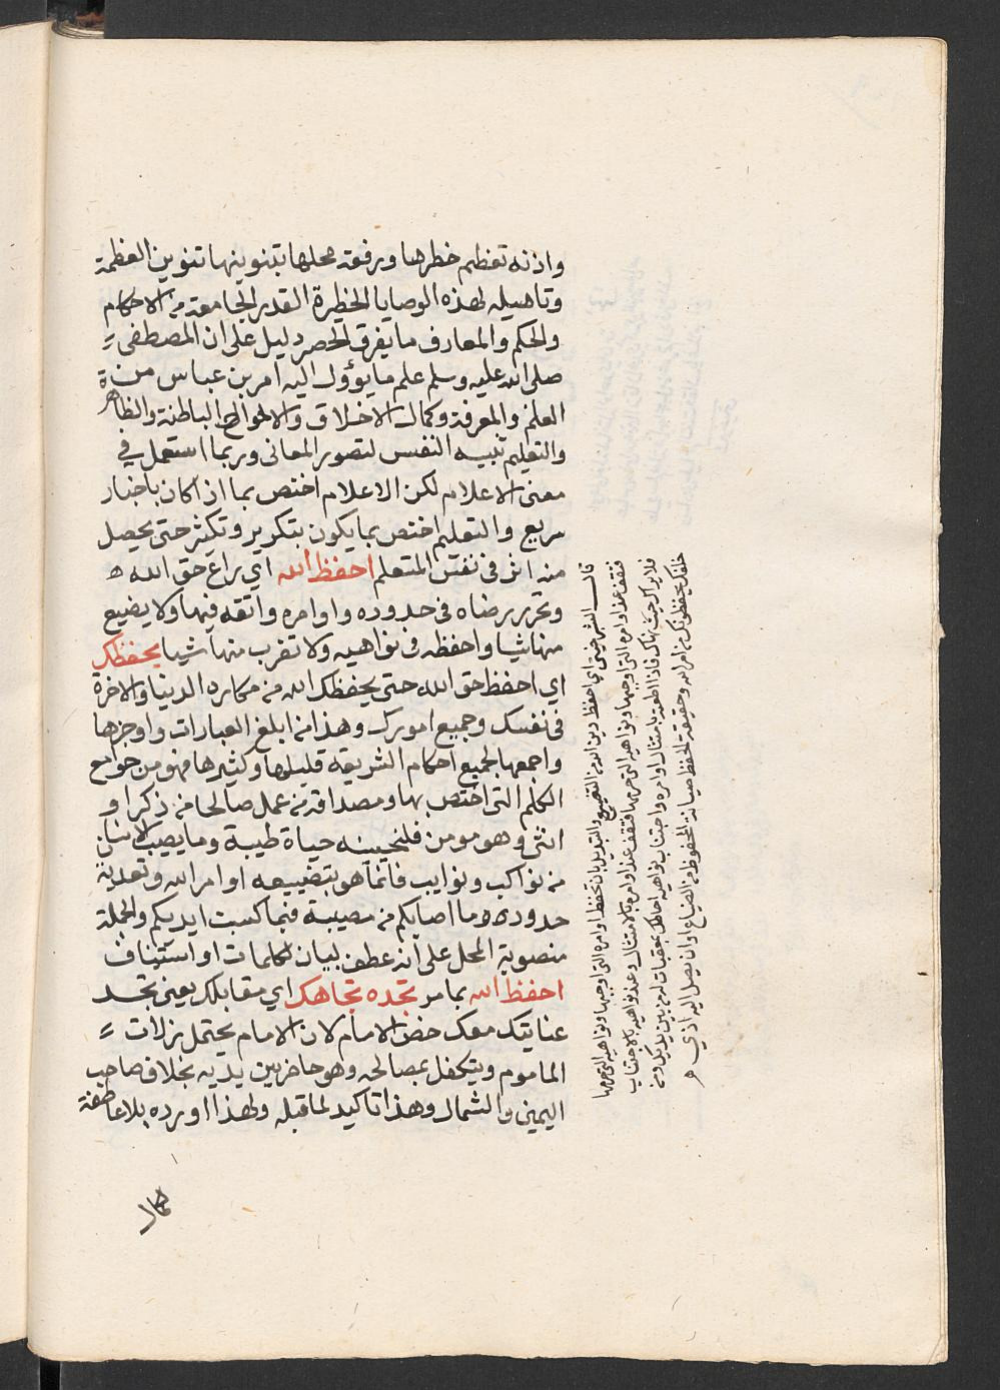 واذنه تعظيم خطرها ورفعة محلها بتنوينها تنوين العظمة
وتاهيله لهذه الوصايا الخطيرة القدر الجامعة من الاحكام
والحكم والمعارف ما يفوق الحصر دليل على ان المصطفى
صلى الله عليه وسلم علم ما يؤول اليه امر بن عباس من
العلم والمعرفة وكمال الاخلاق والاحوال الباطنة والظاهرة
والتعليم تنبيه النفس لتصور المعانى وربما استعمل في
معنى الاعلام لكن الاعلام اختص بما اذا كان باخبار
سريع والتعليم اختص بما يكون بتكرير وتكثير حتى يحصل
منه اثر فى نفس المتعلم احفظ الله اي راع حق الله
وتحر رضاه فى حدوده واوامره واتقه فيها ولا يضيع
منها شيا واحفظه فى نواهيه ولا تقرب منها شيا يحفظك
اي احفظ حق الله حتى يحفظك الله من مكاره الدنيا والاخرة
فى نفسك وجميع امورك وهذا من ابلغ العبارات واوجزها
واجمعها لجميع احكام الشريعة قليلها وكثيرها فهو من جوامع
الكلم التى اختص بها ومصداقه من عمل صالحا من ذكر او
انثى وهو مومن فلنحيينه حياة طيبة وما يصيب الانسان
من نواكب ونوايب فانما هو بتضييعه اوامر الله وتعديه
حدوده وما اصابكم من مصيبة فبما كسبت ايديكم والجملة
منصوبة المحل على انه عطف بيان لكلمات او استيناف
احفظ الله بما مر تجده تجاهك اي مقابلك يعنى تجد
عنايتك معك خص الامام لان الامام يحتمل زلات
الماموم ويتكفل بمصالحه وهو حاضر بين يديه بخلاف صاحب
اليمين والشمال وهذا تاكيد لما قبله ولهذا اورده بلا عاطفة
قال الشبرخيتى اي احفظ دين الله من التضييع والتبديل بان تحفظ اوامره التى اوجبها ونواهيه التى حرمها
فتقف عند اوامره بالامتثال وعند نواهيه بالاجتناب
فلا يراك حيث نهاك فاذا اطعته بامتثال اوامره واجتناب نواهيه احاطك بمعقبات من بين يديك ومن
خلفك يحفظونك من امر الله وحقيقة الحفظ صيانة المحفوظ من الضياع او ان يصل اليه اذي